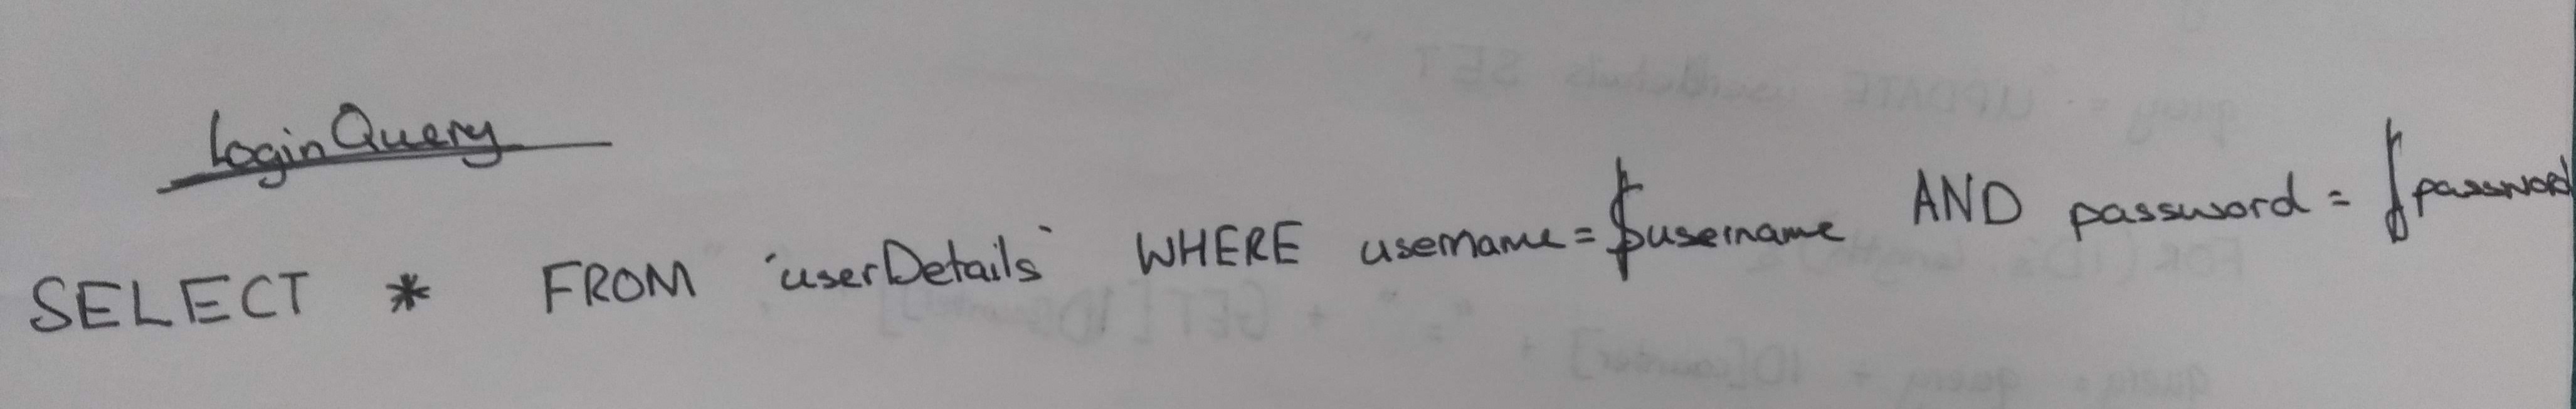 Login Query
SELECT * FROM `userDetails` WHERE username=$username AND password = $password